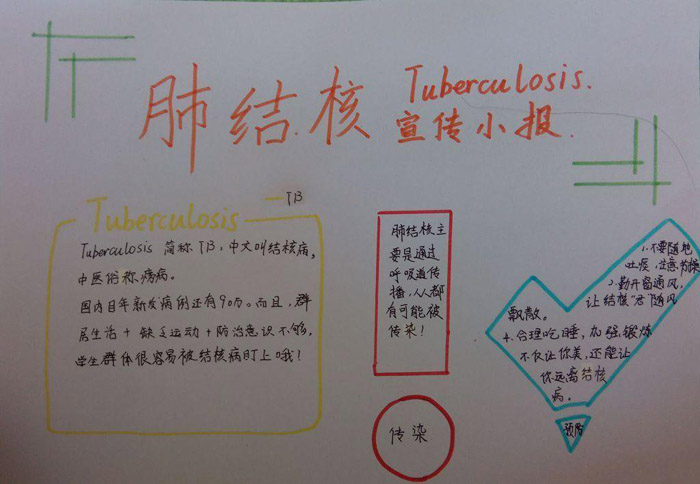 肺结核 Tuberculosis.
宣传小报.
Tuberculosis — TB
Tuberculosis 简称TB,中文叫结核病,
中医俗称痨病。
国内目年新发病例还有90万。而且,群
居生活+缺乏运动+防治意识不够,
学生群体很容易被结核病盯上哦!
肺结核主
要是通过
呼吸道传
播,人人都
有可能被
传染!
传染
1.不要随地
吐痰,注意
2.勤开窗通风,
让结核"君"随风
飘散。
4.合理吃睡,加强锻炼
不仅让你美,还能让
你远离结核
病。
预防